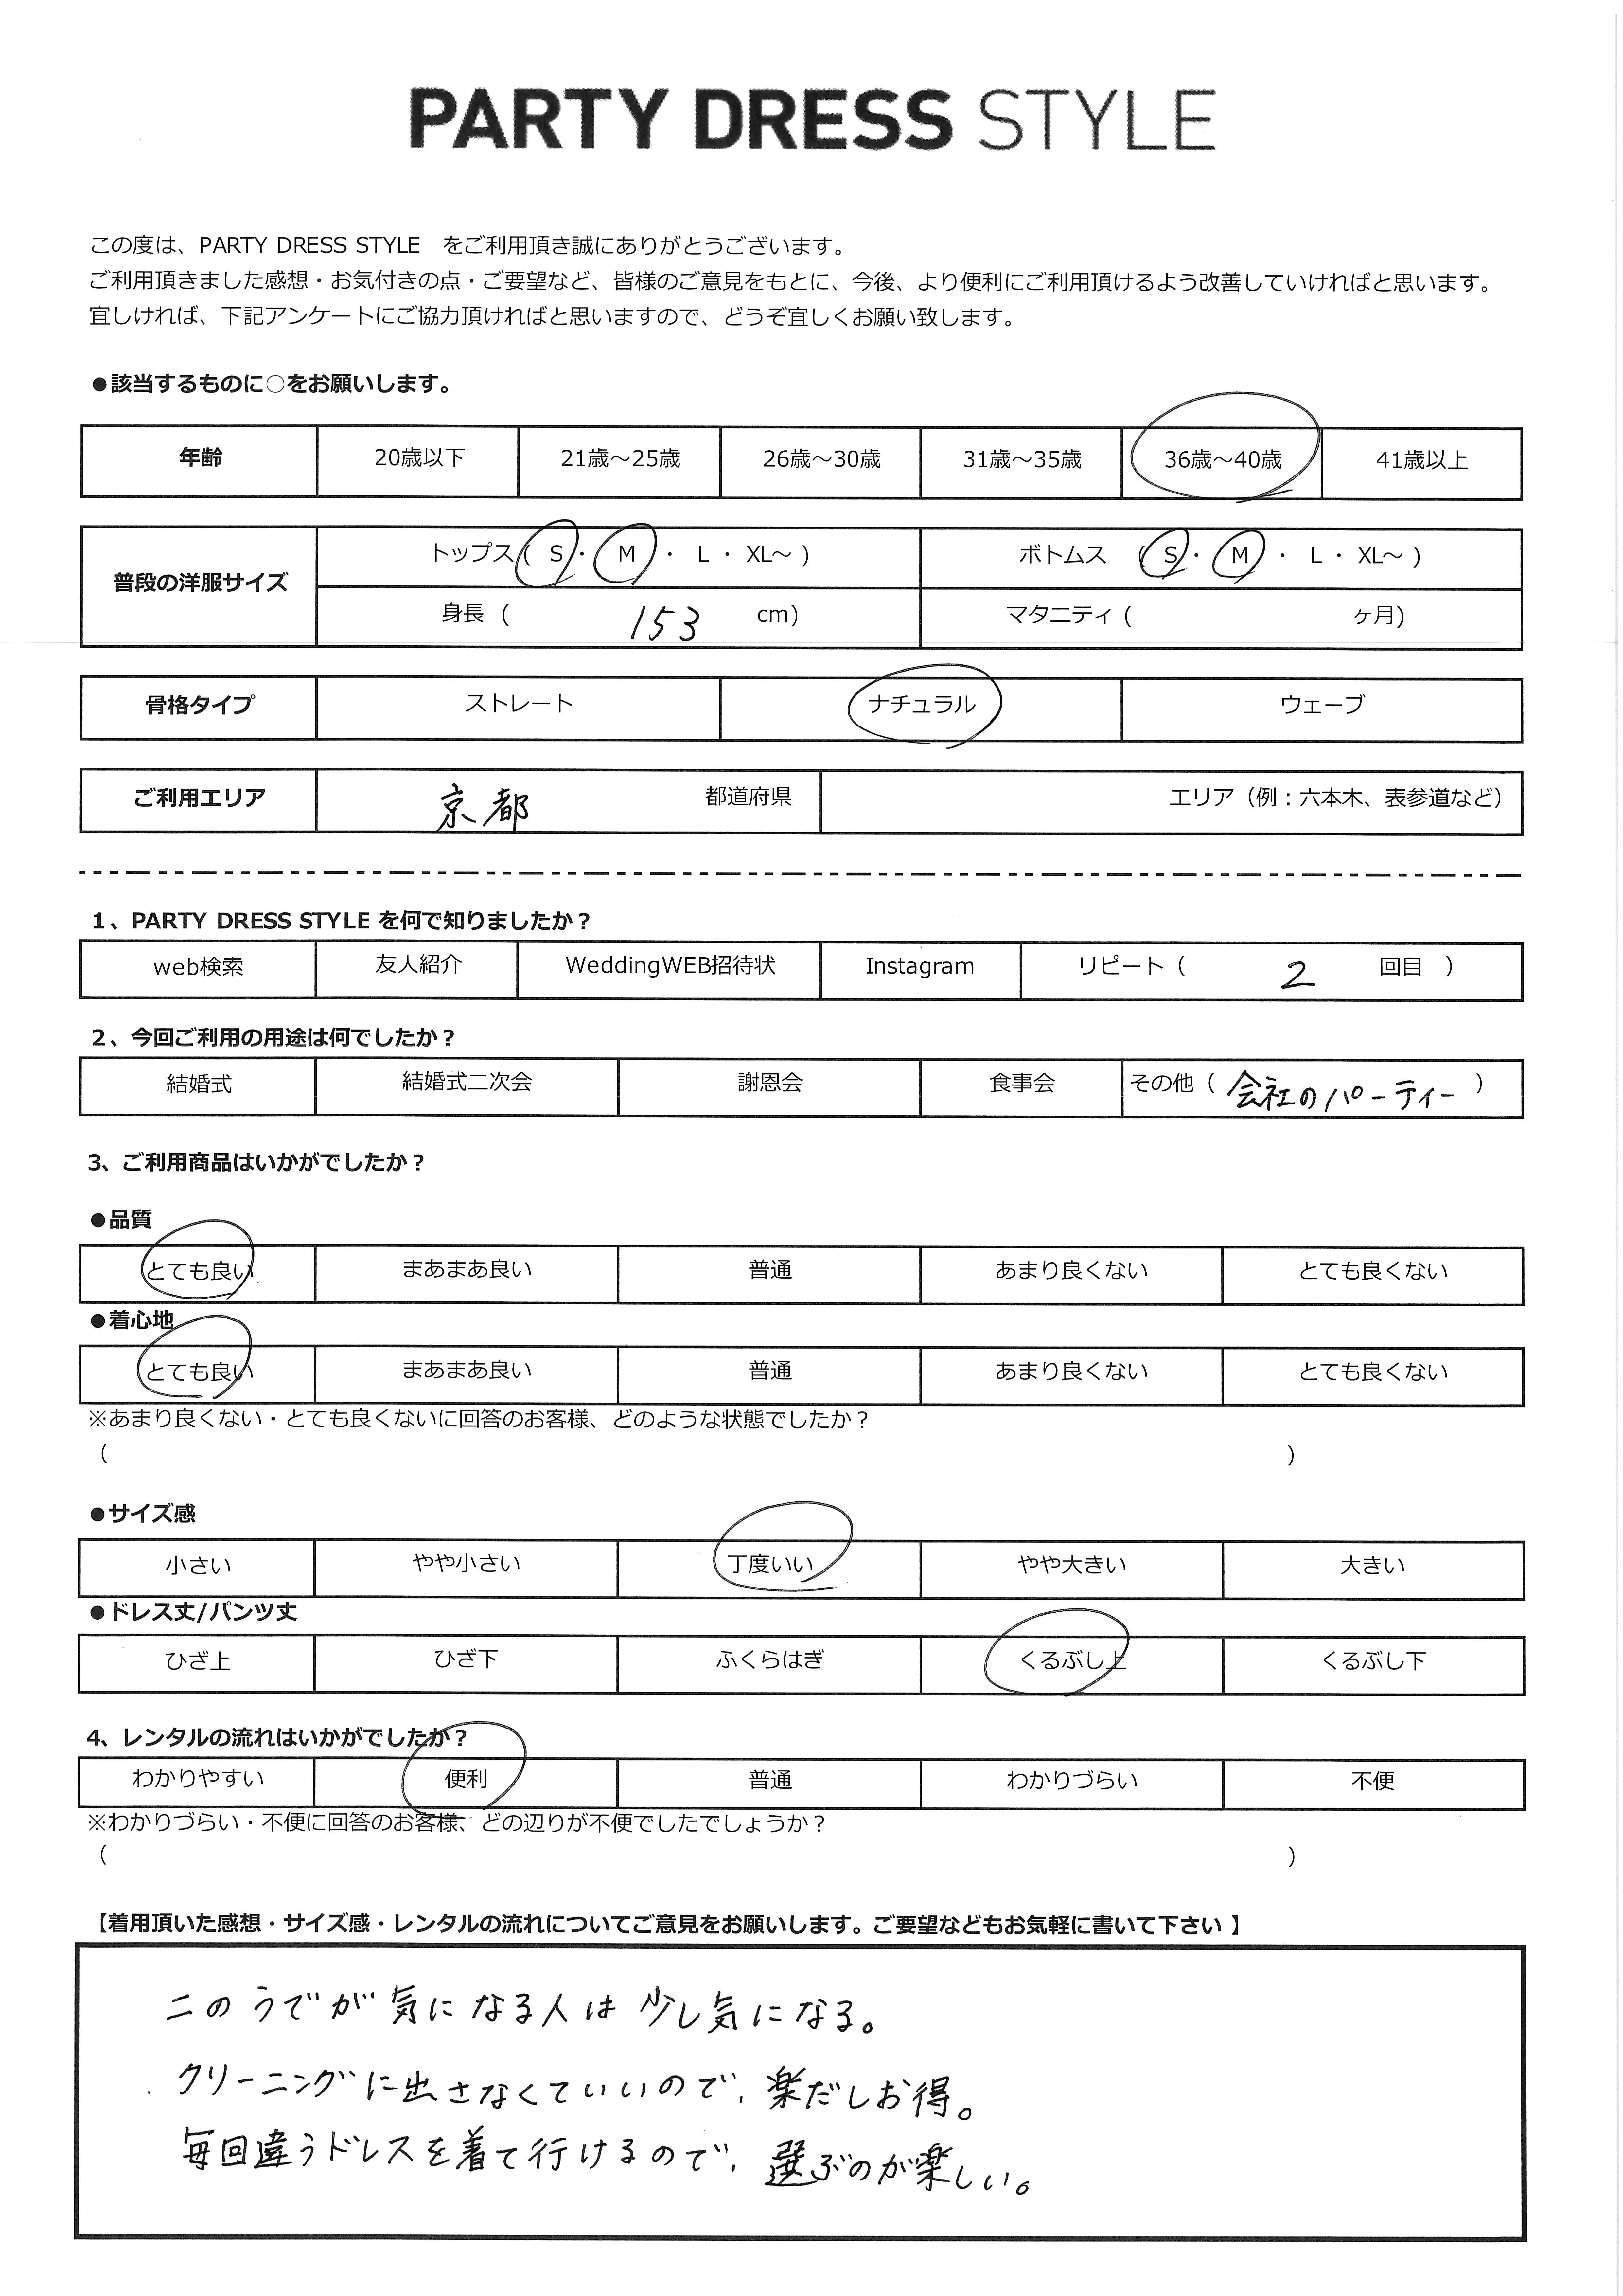 PARTY DRESS STYLE
この度は、PARTY DRESS STYLE をご利用頂き誠にありがとうございます。
ご利用頂きました感想・お気付きの点・ご要望など、皆様のご意見をもとに、今後、より便利にご利用頂けるよう改善していければと思います。
宜しければ、下記アンケートにご協力頂ければと思いますので、どうぞ宜しくお願い致します。
●該当するものに○をお願いします。
年齢 20歳以下 21歳～25歳 26歳～30歳 31歳～35歳 36歳～40歳 41歳以上
普段の洋服サイズ トップス( S ・ M ・ L ・ XL～ ) ボトムス ( S ・ M ・ L ・ XL～ )
身長 ( 153 cm) マタニティ ( ヶ月)
骨格タイプ ストレート ナチュラル ウェーブ
ご利用エリア 京都 都道府県 エリア（例：六本木、表参道など）
1、PARTY DRESS STYLE を何で知りましたか？
web検索 友人紹介 WeddingWEB招待状 Instagram リピート（ 2 回目 ）
2、今回ご利用の用途は何でしたか？
結婚式 結婚式二次会 謝恩会 食事会 その他（ 会社のパーティー ）
3、ご利用商品はいかがでしたか？
●品質
とても良い まあまあ良い 普通 あまり良くない とても良くない
●着心地
とても良い まあまあ良い 普通 あまり良くない とても良くない
※あまり良くない・とても良くないに回答のお客様、どのような状態でしたか？
（ ）
●サイズ感
小さい やや小さい 丁度いい やや大きい 大きい
●ドレス丈/パンツ丈
ひざ上 ひざ下 ふくらはぎ くるぶし上 くるぶし下
4、レンタルの流れはいかがでしたか？
わかりやすい 便利 普通 わかりづらい 不便
※わかりづらい・不便に回答のお客様、どの辺りが不便でしたでしょうか？
（ ）
【着用頂いた感想・サイズ感・レンタルの流れについてご意見をお願いします。ご要望などもお気軽に書いて下さい 】
二のうでが気になる人は少し気になる。
クリーニングに出さなくていいので、楽だしお得。
毎回違うドレスを着て行けるので、選ぶのが楽しい。